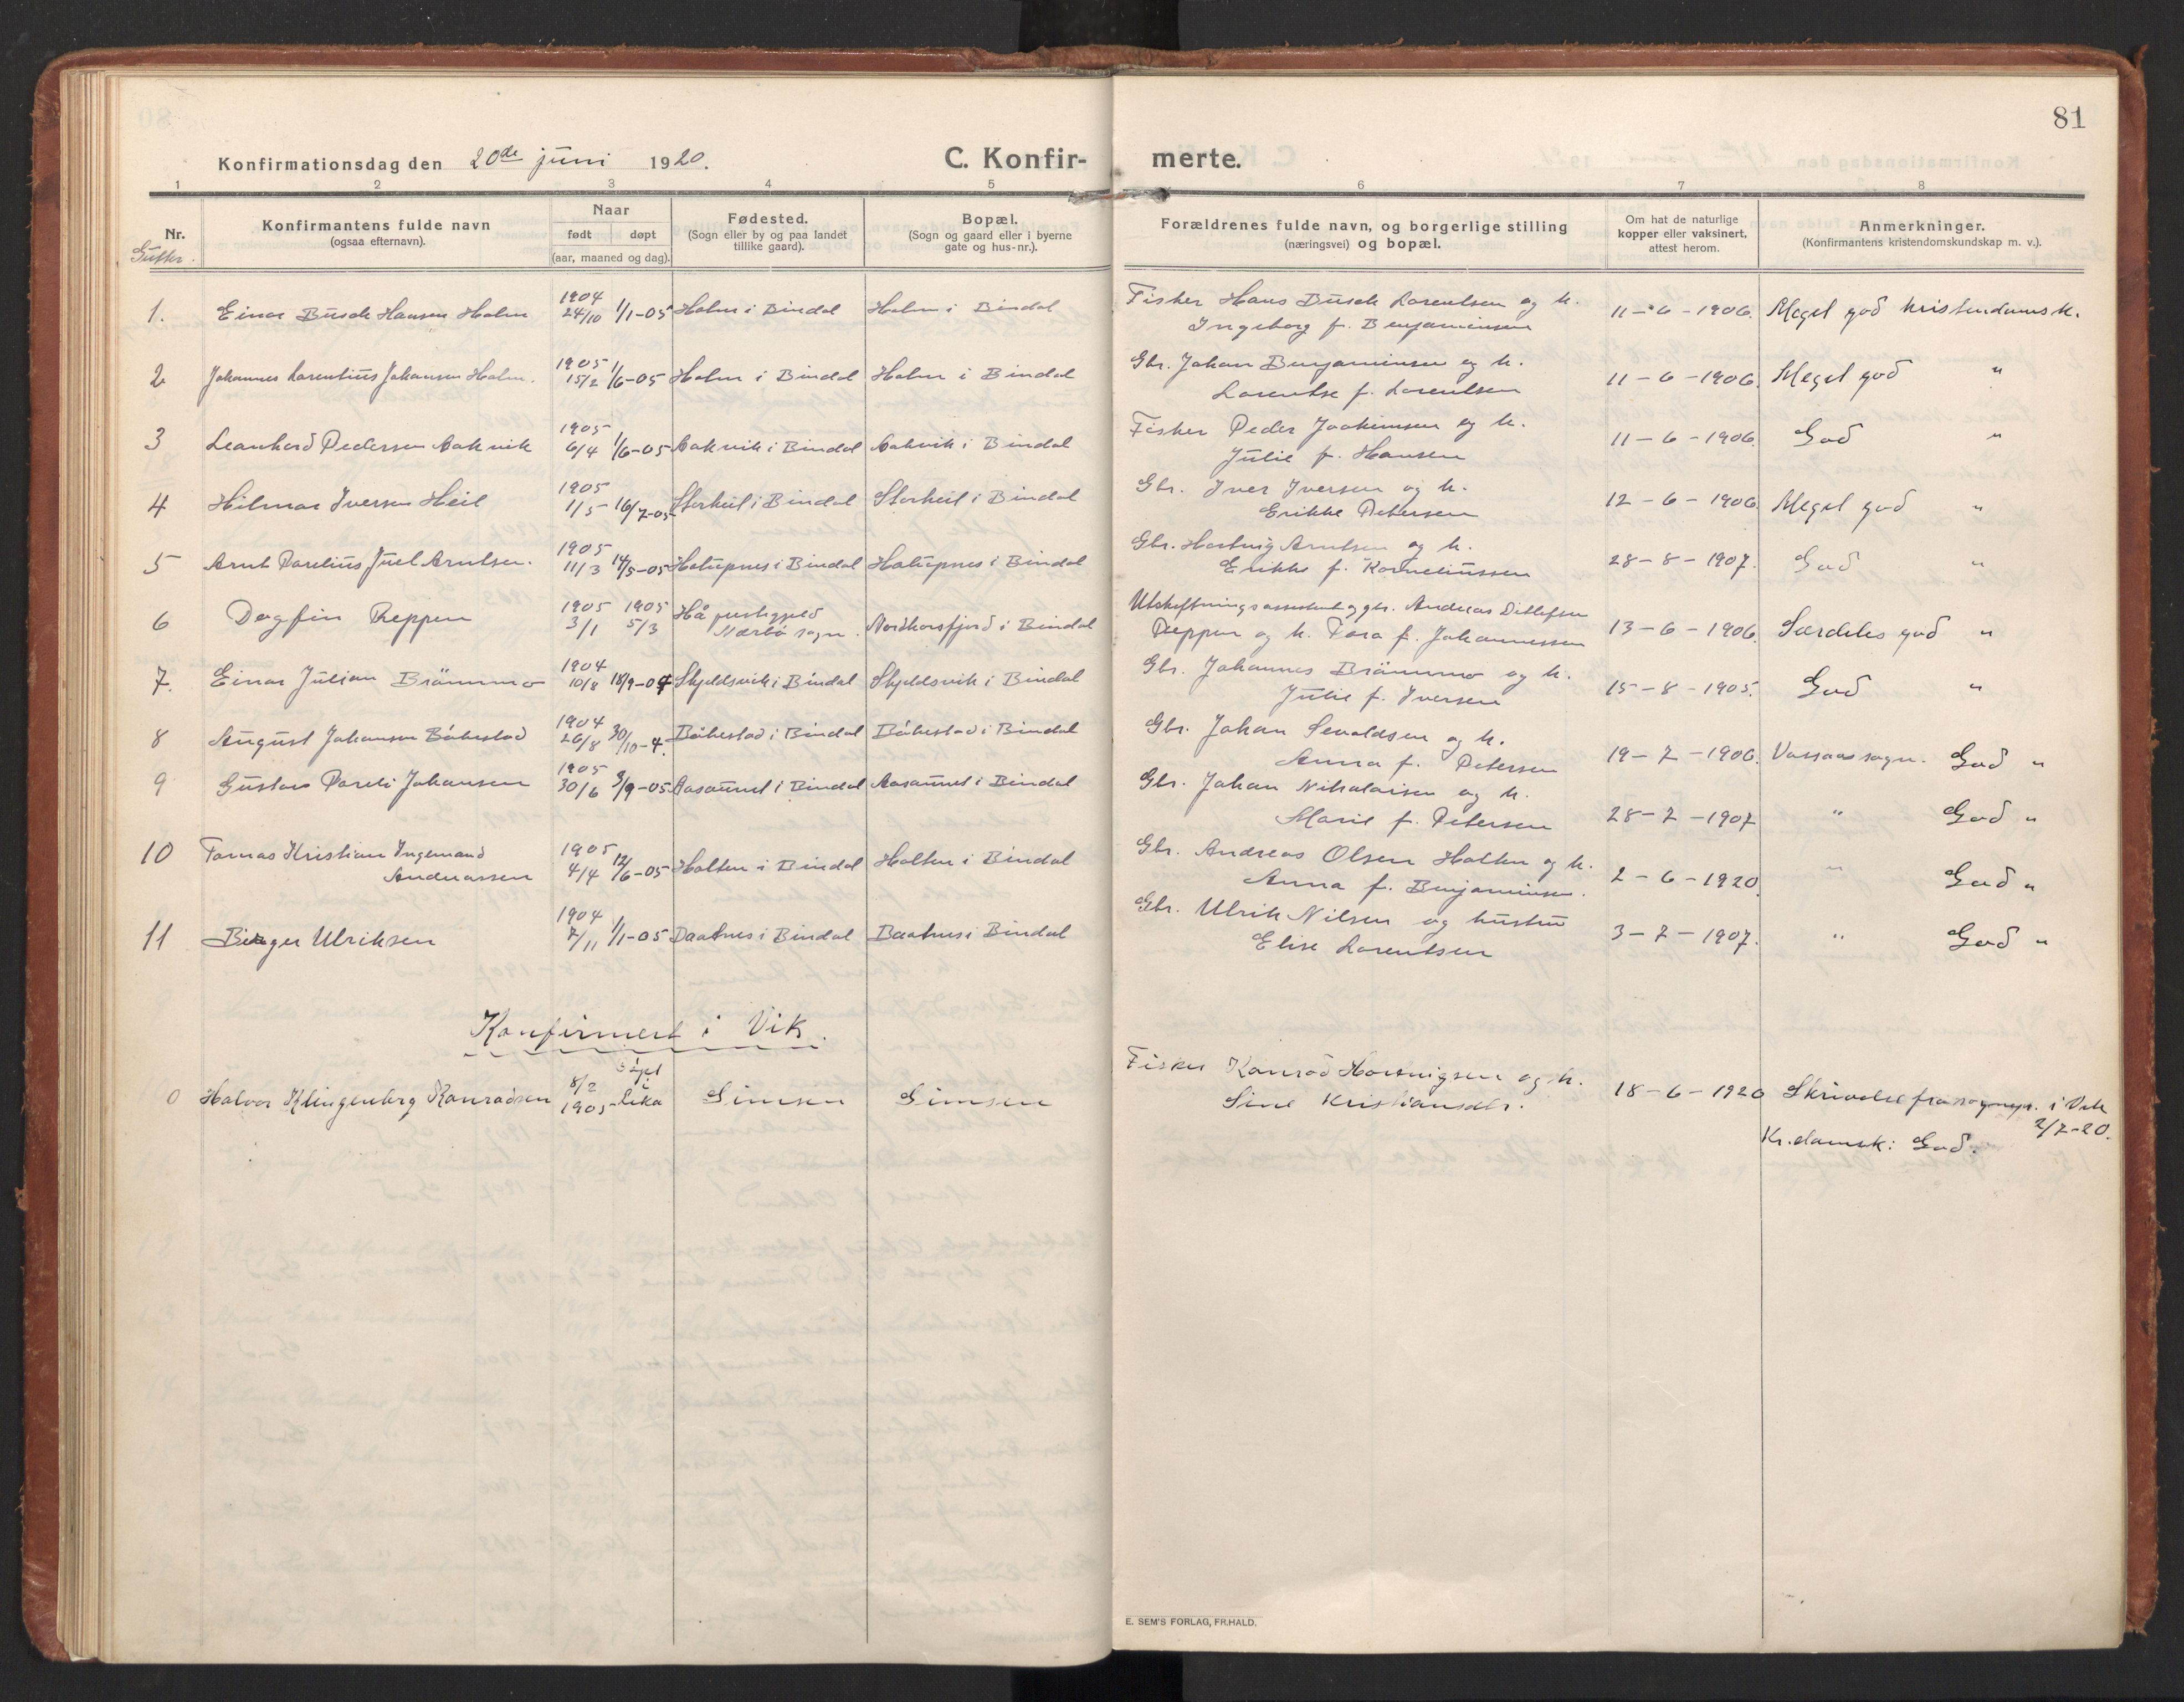 81
Konfirmationsdag den 20de juni 1920.
C. Konfir-merte.
1 2 3 4 5 6 7 8
Nr.
Gutter.
Konfirmantens fulde navn
(ogsaa efternavn).
Naar
født døpt
(aar, maaned og dag).
Fødested.
(Sogn eller by og paa landet
tillike gaard).
Bopæl.
(Sogn og gaard eller i byerne
gate og hus-nr.).
Forældrenes fulde navn, og borgerlige stilling
(næringsvei) og bopæl.
Om hat de naturlige
kopper eller vaksinert,
attest herom.
Anmerkninger.
(Konfirmantens kristendomskundskap m. v.).
1. Einar Busch Hansen Holm 1904 24/10 1/1-05 Holm i Bindal Holm i Bindal Fisker Hans Busch Lorentsen og h.
Ingeborg f. Benjaminsen 11-6-1906. Meget god kristendomsk.
2 Johannes Lorentius Johansen Holm. 1905 15/2 1/6-05 Holm i Bindal Holm i Bindal Gbr. Johan Benjaminsen og h.
Lorentse f. Lorentsen 11-6-1906. Meget god "
3 Leonhard Pedersen Aakvik 1905 6/4 1/6-05 Aakvik i Bindal Aakvik i Bindal Fisker Peder Joakimsen og h.
Julie f. Hansen 11-6-1906. God "
4 Hilmar Iversen Heil 1905 1/5- 16/7-05 Storheil i Bindal Storheil i Bindal Gbr. Iver Iversen og h.
Erikke Petersen 12-6-1906 Meget god "
5 Arnt Parelius Juel Arntsen. 1905 11/3 14/5-05 Holupnes i Bindal Holupnes i Bindal Gbr. Hartvig Arntsen og h.
Erikke f. Korneliussen 28-8-1907. God "
6 Dagfin Reppen 1905 3/1 1905 5/3 Hå prestegjeld
Nærbø sogn. Nordhorsfjord i Bindal Utskiftningsassistent og gbr. Andreas Ditlefsen
Reppen og h. Tora f. Johannessen 13-6-1906. Særdeles god "
7. Einar Julian Brännmo 1904 10/8 18/9-04 Skjeldsvik i Bindal Skjeldsvik i Bindal Gbr. Johannes Brännmo og h.
Julie f. Iversen 15-8-1905. God "
8 August Johansen Båkestad 1904 26/8 30/10-4. Båkestad i Bindal Båkestad i Bindal Gbr. Johan Sevaldsen og h.
Anna f. Petersen 19-7-1906. Vassaas sogn. God "
9 Gustav Pareli Johansen 1905 30/6 3/9-05 Aasaunet i Bindal Aasaunet i Bindal Gbr. Johan Nikolaisen og h.
Marie f. Petersen 28-7-1907 " God "
10 Tomas Kristian Ingemand
Andreassen 1905 4/4 12/6-05 Holten i Bindal Holten i Bindal Gbr. Andreas Olsen Holten og h.
Anna f. Benjaminsen. 2-6-1920. " God "
11 Birger Ulriksen 1904 7/11 1/1-05 Baatnes i Bindal Baatnes i Bindal Gbr. Ulrik Nilsen og hustru
Elise Lorentsen 3-7-1907. " God "
Konfirmert i Vik.
0 Halvor Klingenberg Konradsen 8/2 1905 døpt i Leka Simsen Simsen Fisker Konrad Hartvigsen og h.
Sine Kristiansdtr. 18-6-1920 Skrivelse fra sognepr. i Vik
2/7-20.
Kr.domsk: God.
E. SEM'S FORLAG, FR.HALD.